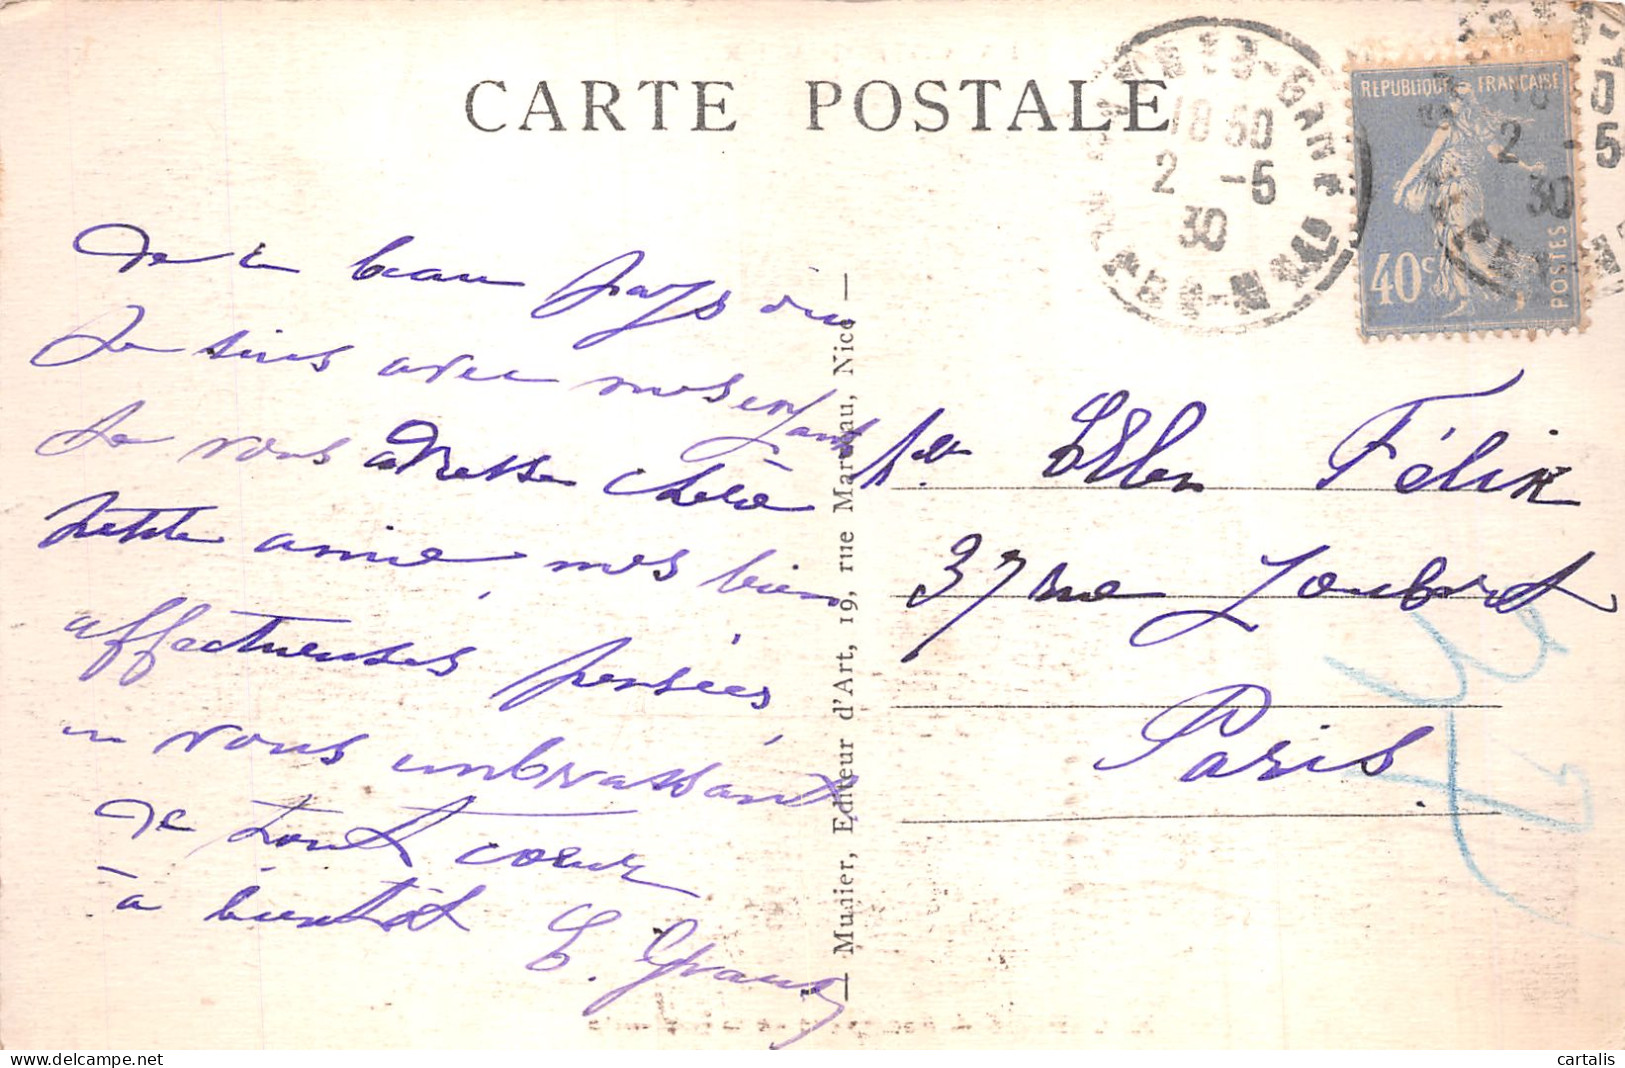 CARTE POSTALE
18 50
2 -5
30
REPUBLIQUE FRANÇAISE
2 -5
30
40c
POSTES
De ce beau pays où
Je suis avec mes enfants
Je vous adresse chère
petite amie, mes bien
affectueuses pensées,
en vous embrassant
de tout coeur
à bientôt
Félix
37 rue Joubert
Paris
— Mudier, Editeur d'Art, 19, rue Marceau, Nice —
cartalis